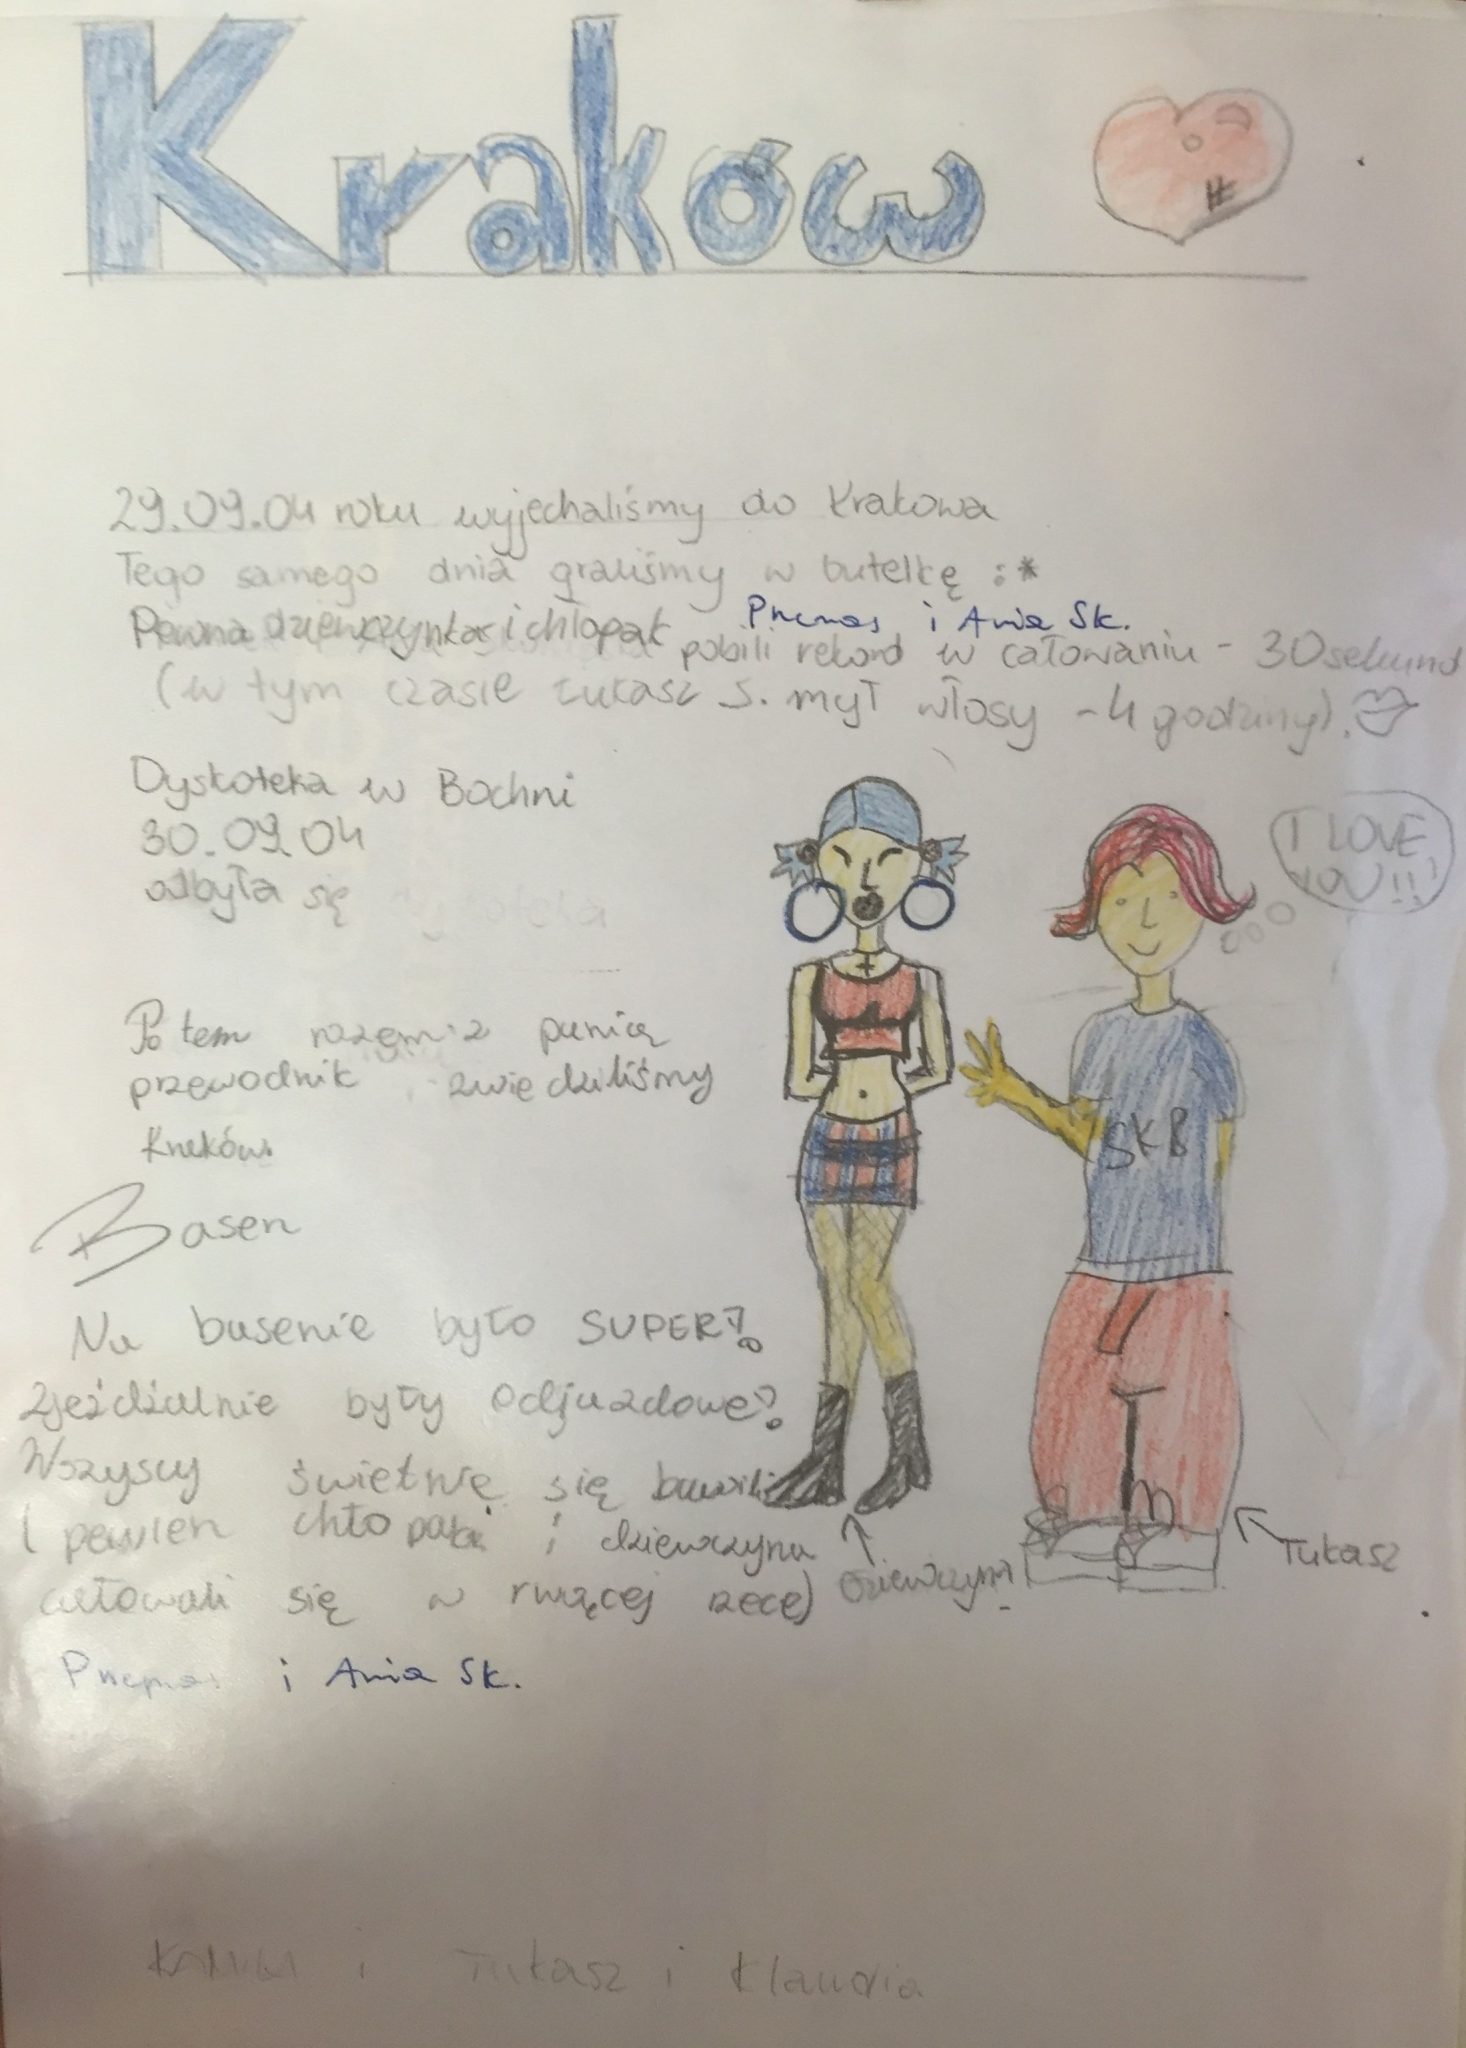 Kraków
29.09.04 roku wyjechaliśmy do Krakowa
Tego samego dnia graliśmy w butelkę :*
Przemas i Ania Sk.
Pewna dziewczynka i chłopak pobili rekord w całowaniu - 30 sekund
(w tym czasie Łukasz S. mył włosy - 4 godziny).
Dyskoteka w Bochni
30.09.04
odbyła się dyskoteka
I LOVE
YOU!!!
Potem razem z panią
przewodnik zwiedziliśmy
Kraków.
SKB
Basen
Na basenie było SUPER!
Zjeżdżalnie były odjazdowe!
Wszyscy świetnie się bawili
( pewien chłopak i dziewczyna
całowali się w rwącej rzece)
Dziewczyna
Łukasz
Przemas i Ania Sk.
i Łukasz i Klaudia